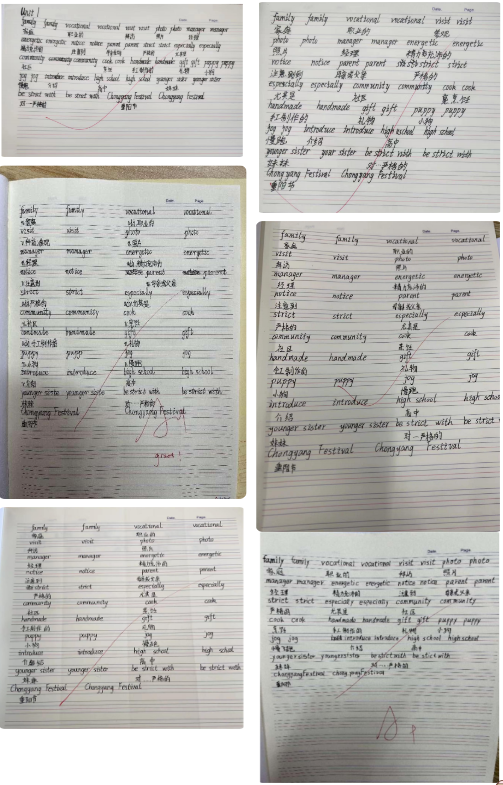 Unit 1
family family vocational vocational visit visit photo photo manager manager
家庭 职业的 拜访 照片 经理
energetic energetic notice notice parent parent strict strict especially especially
community community cook cook handmade handmade gift gift puppy puppy
社区 烹饪 手工制作的 礼物 小狗
jog jog introduce introduce high school high school younger sister
慢跑 介绍 高中 妹妹
be strict with be strict with Chongyang Festival Chongyang Festival
对…严格的 重阳节
family family vocational vocational visit visit
家庭 职业的
photo photo manager manager energetic energetic
照片 经理 精力充沛的
notice notice parent parent strict strict
注意到 严格的
especially especially community community cook cook
尤其是 社区 烹饪
handmade handmade gift gift puppy puppy
手工制作的 礼物 小狗
jog jog introduce introduce high school high school
慢跑 介绍 高中
younger sister your sister be strict with be strict with
妹妹 对…严格的
Chongyang Festival Chongyang Festival
重阳节
family family vocational vocational
n.家庭
visit visit photo photo
n.照片
manager manager energetic energetic
n.经理
notice notice parent parent
strict strict especially especially
community community cook cook
handmade handmade gift gift
n.礼物
puppy puppy jog jog
introduce introduce high school high school
高中
younger sister younger sister be strict with be strict with
妹妹 对…严格的
Chongyang Festival Chongyang Festival
重阳节
family family vocational vocational
家庭 职业的
visit visit photo photo
拜访 照片
manager manager energetic energetic
经理 精力充沛的
notice notice parent parent
注意到
strict strict especially especially
严格的 尤其是
community community cook cook
社区 烹饪
handmade handmade gift gift
手工制作的 礼物
puppy puppy jog jog
小狗 慢跑
introduce introduce high school high school
介绍 高中
younger sister younger sister be strict with be strict
妹妹 对…严格的
Chongyang Festival Chongyang Festival
重阳节
family family vocational vocational
家庭 职业的
visit visit photo photo
拜访 照片
manager manager energetic energetic
经理 精力充沛的
notice notice parent parent
注意到
strict strict especially especially
严格的 尤其是
community community cook cook
社区 烹饪
handmade handmade gift gift
手工制作的 礼物
puppy puppy jog jog
小狗
introduce introduce high school high school
介绍 高中
younger sister younger sister be strict with be strict with
妹妹 对…严格的
Chongyang Festival Chongyang Festival
重阳节
family family vocational vocational visit visit photo photo
家庭 职业的 拜访 照片
manager manager energetic energetic notice notice parent parent
经理 精力充沛的 注意到
strict strict especially especially community community
严格的 尤其是 社区
cook cook handmade handmade gift gift puppy puppy
烹饪 手工制作的 礼物 小狗
jog jog introduce introduce high school high school
慢跑 介绍 高中
younger sister younger sister be strict with be strict with
妹妹 对…严格的
Chongyang Festival Chongyang Festival
重阳节